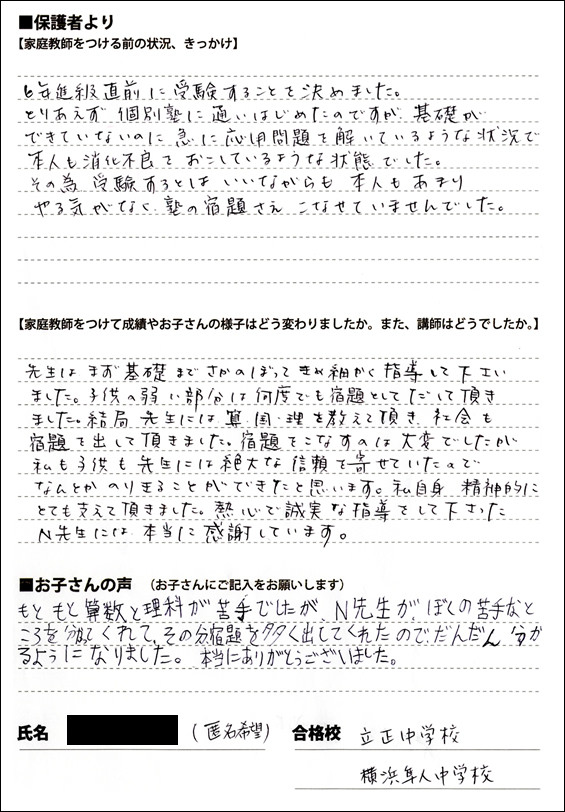 ■保護者より
【家庭教師をつける前の状況、きっかけ】
6年進級直前に受験することを決めました。
とりあえず個別塾に通いはじめたのですが、基礎が
できていないのに急に応用問題を解いているような状況で
本人も消化不良をおこしているような状態でした。
その為受験するとはいいながらも本人もあまり
やる気がなく、塾の宿題さえこなせていませんでした。
【家庭教師をつけて成績やお子さんの様子はどう変わりましたか。また、講師はどうでしたか。】
先生はまず基礎までさかのぼってきめ細かく指導して下さい
ました。子供の弱い部分は何度でも宿題としてだして頂き
ました。結局先生には算・国・理を教えて頂き、社会も
宿題を出して頂きました。宿題をこなすのは大変でしたが
私も子供も先生には絶大な信頼を寄せていたので
なんとかのりきることができたと思います。私自身精神的に
とても支えて頂きました。熱心で誠実な指導をして下さった
N先生には本当に感謝しています。
■お子さんの声 (お子さんにご記入をお願いします)
もともと算数と理科が苦手でしたが、N先生が、ぼくの苦手なと
ころを分かってくれて、その分宿題を多く出してくれたので、だんだん分か
るようになりました。本当にありがとうございました。
氏名 (匿名希望) 合格校 立正中学校
横浜隼人中学校